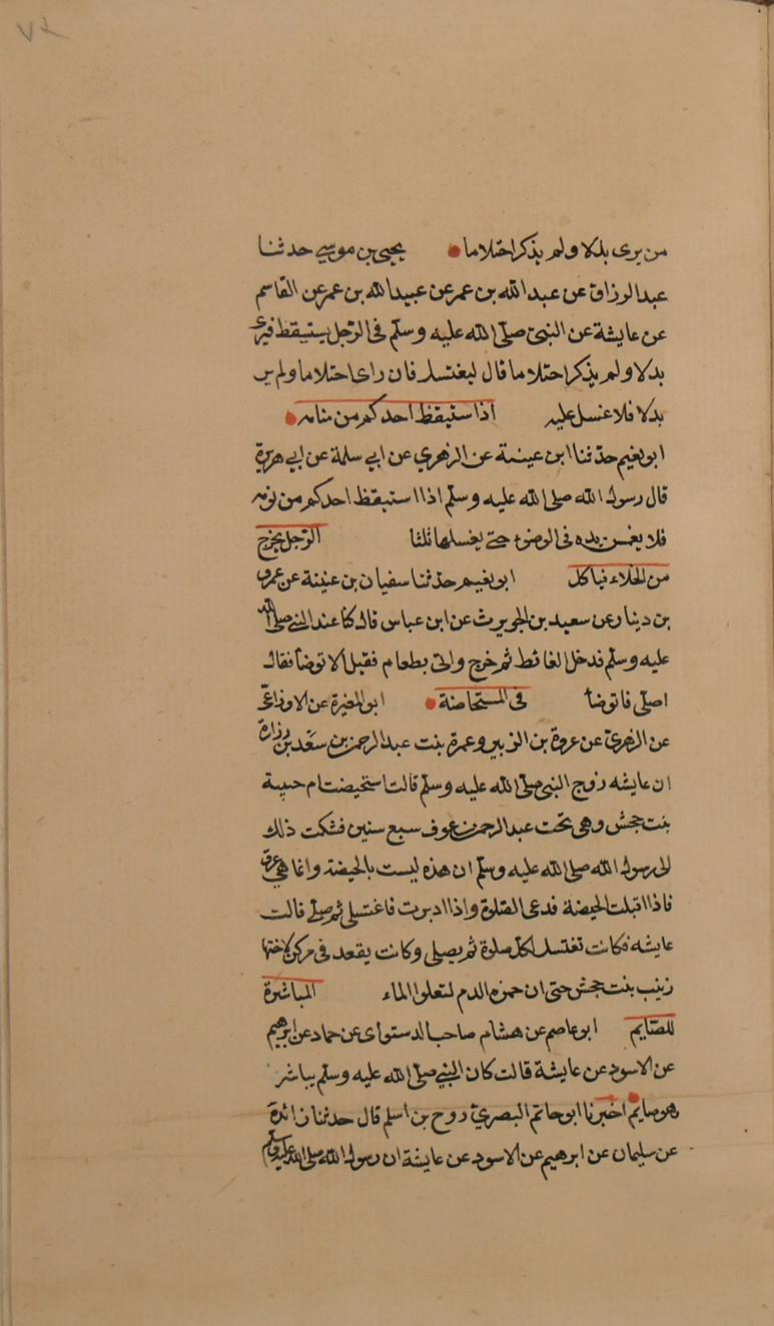 ٧٤
من يرى بللا ولم يذكر احتلاما يحيى بن موسى حدثنا
عبد الرزاق عن عبد الله بن عمر عن عبيد الله بن عمر عن القاسم
عن عايشة عن النبي صلى الله عليه وسلم في الرجل يستيقظ فيرى
بللا ولم يذكر احتلاما قال ليغتسل فان راى احتلاما ولم ير
بللا فلا غسل عليه اذا استيقظ احدكم من منامه
ابو نعيم حدثنا ابن عيينة عن الزهري عن ابي سلمة عن ابي هريرة
قال رسول الله صلى الله عليه وسلم اذا استيقظ احدكم من نومه
فلا يغمس يده في الوضوء حتى يغسلها ثلثا الرجل يخرج
من الخلاء فياكل ابو نعيم حدثنا سفيان بن عيينة عن عمرو
بن دينار عن سعيد بن الحويرث عن ابن عباس قال كنا عند النبي صلى الله
عليه وسلم فدخل الغائط ثم خرج واتى بطعام فقيل الا توضأ فقال
اصلى فاتوضأ في المستحاضة ابو المغيرة عن الاوزاعي
عن الزهري عن عروة بن الزبير وعمرة بنت عبد الرحمن بن سعد بن زرارة
ان عايشه زوج النبي صلى الله عليه وسلم قالت استحيضت ام حبيبة
بنت جحش وهي تحت عبد الرحمن بن عوف سبع سنين فشكت ذلك
لى رسول الله صلى الله عليه وسلم ان هذه ليست بالحيضة وانما هي عرق
فاذا اقبلت الحيضة فدعى الصلوة واذا ادبرت فاغتسلى ثم صلى قالت
عايشه فكانت تغتسل لكل صلوة ثم يصلى وكانت يقعد في مركن لاختها
زينب بنت جحش حتى ان حمزه الدم لتعلوا الماء المباشرة
للصايم ابو عاصم عن هشام صاحب الدستواى عن حماد عن ابرهيم
عن الاسود عن عايشة قالت كان النبي صلى الله عليه وسلم يباشر
وهو صايم اخبرنا ابو حاتم البصري روح بن اسلم قال حدثنا زائدة
عن سليمان عن ابرهيم عن الاسود عن عايشة ان رسول الله صلى الله عليه وسلم